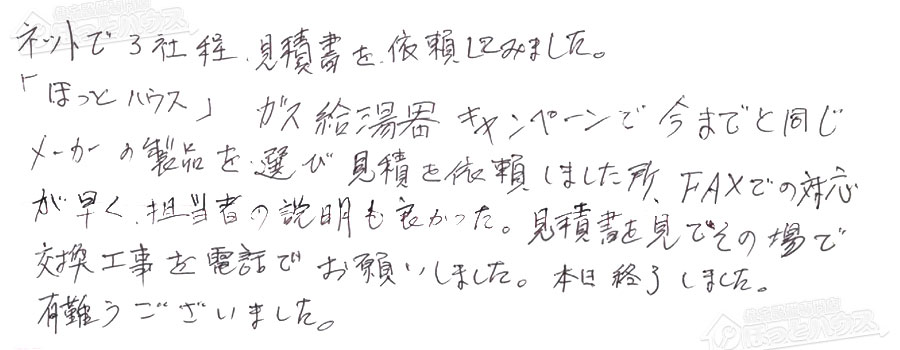 ネットで3社程、見積書を依頼してみました。
「ほっとハウス」 ガス給湯器 キャンペーンで今までと同じ
メーカーの製品を選び見積を依頼しました所、FAXでの対応
が早く、担当者の説明も良かった。見積書を見てその場で
交換工事を電話でお願いしました。本日終了しました。
有難うございました。
ほっとハウス
ほっとハウス